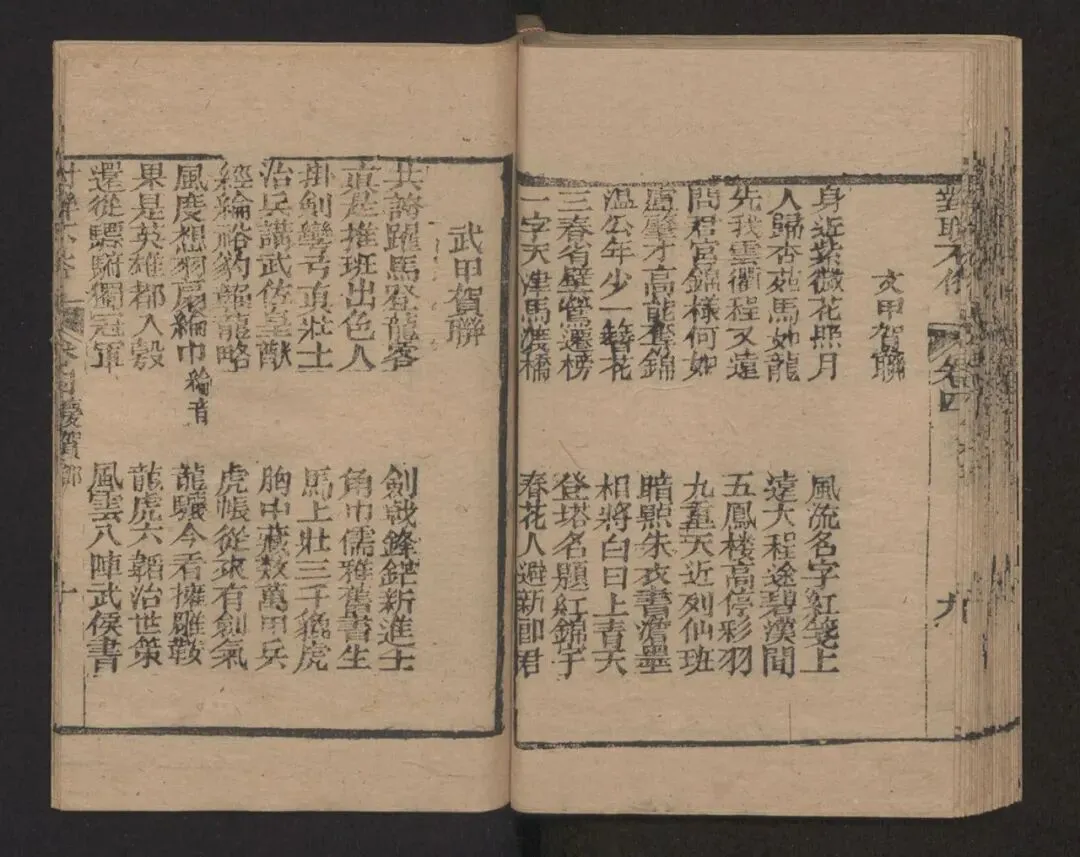 對聯不俗 卷四 九
文甲賀聯
身近紫微花照月
風流名字紅箋上
人歸杏苑馬如龍
遠大程途碧漢間
先我雲衢程又遠
五鳳樓高停彩羽
問君宮錦樣何如
九重天近列仙班
才高能奪錦
暗點朱衣書澹墨
溫公年少一簪花
相將白日上青天
三春省壁鶯遷榜
登塔名題紅錦字
一字天津馬渡橋
春花人避新郎君
武甲賀聯
共誇躍馬登龍客
劍戟鋒鋩新進士
直是推班出色人
角巾儒雅舊書生
掛劍彎弓真壯士
馬上壯三千貔虎
治兵講武佐皇猷
胸中藏數萬甲兵
經綸裕豹韜龍略
虎帳從來有劍氣
風度想羽扇綸巾 綸音
龍驤今看擁雕鞍
果是英雄都入彀
龍虎六韜治世策
還從驃騎獨冠軍
風雲八陣武侯書
卷四 慶賀部 十